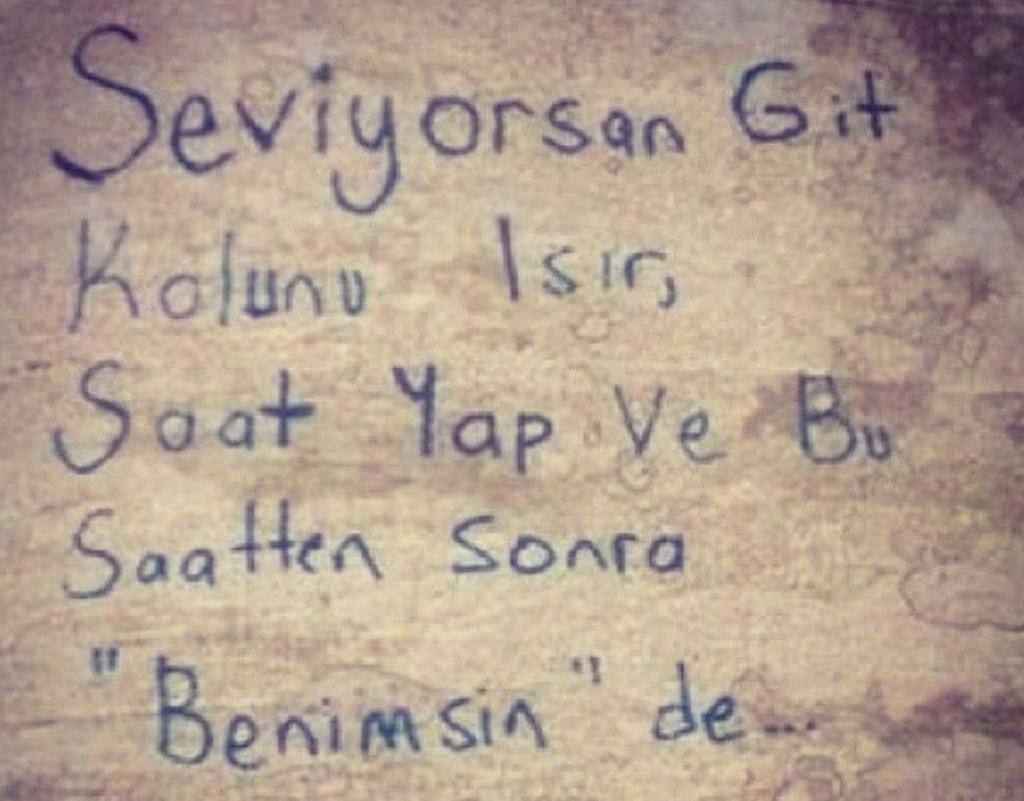 Seviyorsan Git
Kolunu Isır,
Saat Yap Ve Bu
Saatten Sonra
"Benimsin" de...